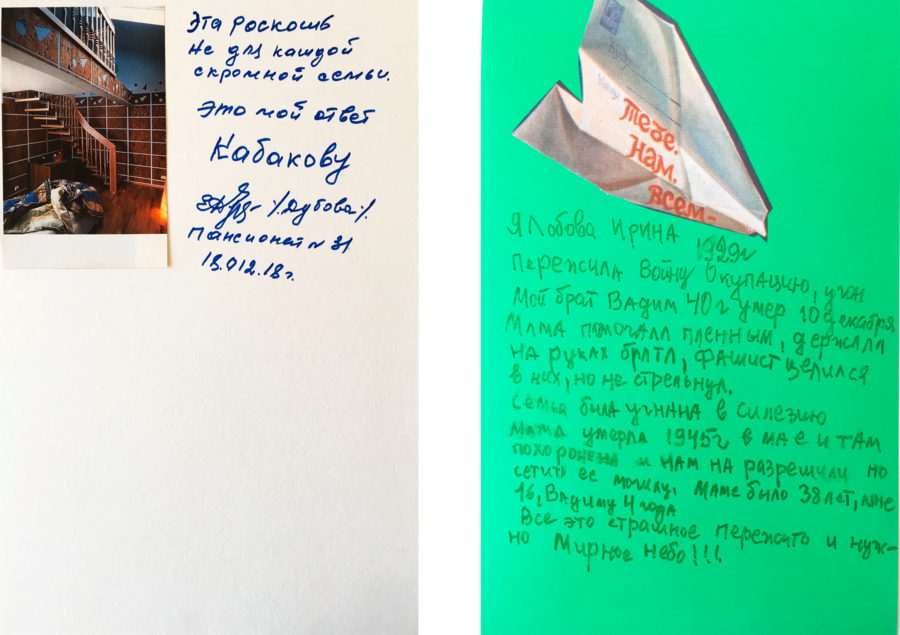 Эта роскошь
не для каждой
скромной семьи.
Это мой ответ
Кабакову
/.Дубова./.
Пансионат N 31
18.012.18г.
Тебе.
Нам.
Всем-
Я Лобова Ирина
1929г
Пережила войну Окупацию, угон
Мой брат Вадим 40г умер 10 декабря
Мама помогала пленным, держала
на руках брата, фашист целился
в них, но не стрельнул.
Семья была угнана в Силезию
мама умерла 1945г в мае и там
похоронена и нам на разрешили по
сетить её могилу. Маме было 38 лет, мне
16, Вадиму 4 года
Все это страшное пережить и нуж-
но Мирное небо!!!